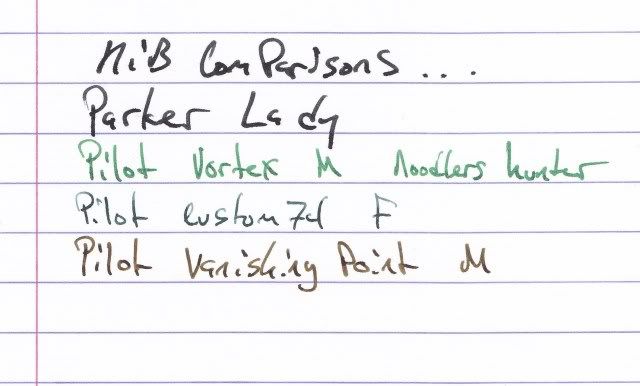 Nib Comparisons ....
Parker Lady
Pilot Vortex M Noodlers hunter
Pilot custom 74 F
Pilot Vanishing Point M